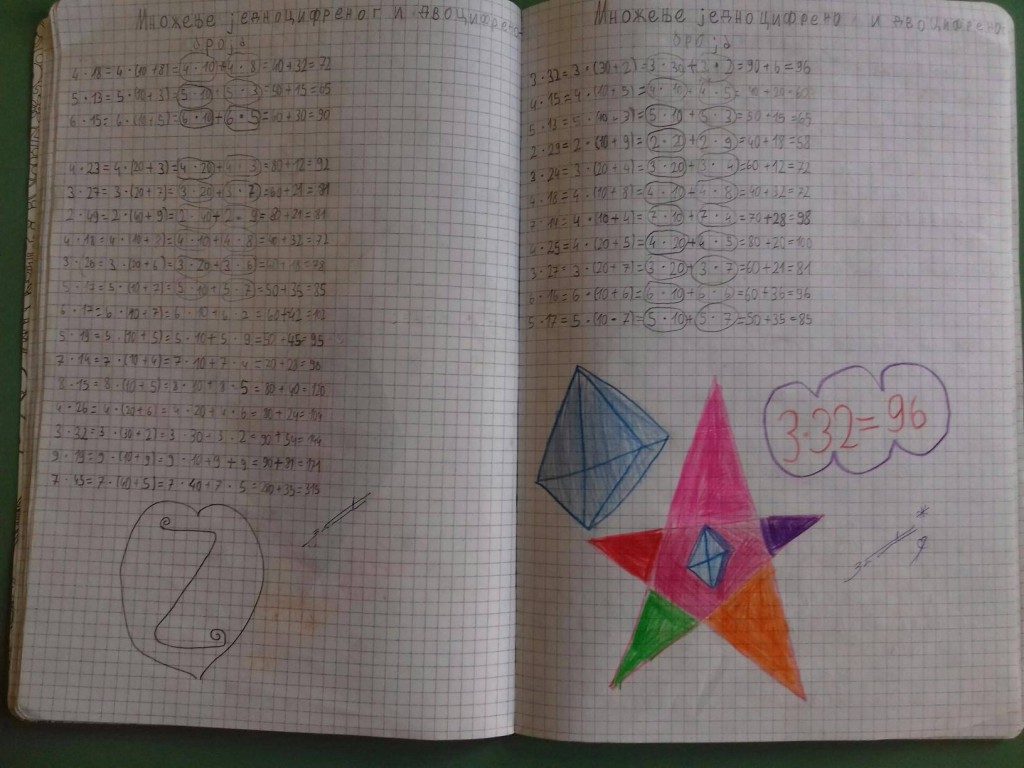 Множење једноцифреног и двоцифрено-
броја
4·18=4·(10+8)=4·10+4·8=40+32=72
5·13=5·(10+3)=5·10+5·3=50+15=65
6·15=6·(10+5)=6·10+6·5=60+30=90
4·23=4·(20+3)=4·20+4·3=80+12=92
3·27=3·(20+7)=3·20+3·7=60+21=81
2·49=2·(40+9)=2·40+2·9=80+21=81
4·18=4·(10+8)=4·10+4·8=40+32=72
3·26=3·(20+6)=3·20+3·6=60+18=78
5·17=5·(10+7)=5·10+5·7=50+35=85
6·17=6·(10+7)=6·10+6·2=60+42=102
5·19=5·(10+5)=5·10+5·9=50+45=95
7·14=7·(10+4)=7·10+7·4=70+28=96
8·15=8·(10+5)=8·10+8·5=80+40=120
4·26=4·(20+6)=4·20+4·6=90+24=104
3·32=3·(30+2)=3·30+3·2=90+54=144
9·19=9·(10+9)=9·10+9+9=90+81=171
7·45=7·(40+5)=7·40+7·5=280+35=315
Множење једноцифрено и двоцифрено-
броја
3·32=3·(30+2)=3·30+2·2=90+6=96
4·15=4·(10+5)=4·10+4·5=40+20=60
5·13=5·(10+3)=5·10+5·3=50+15=65
2·29=2·(10+9)=2·2+2·9=40+18=58
3·24=3·(20+4)=3·20+3·4=60+12=72
4·18=4·(10+8)=4·10+4·8=40+32=72
7·14=4·(10+4)=7·10+7·4=70+28=98
4·25=4·(20+5)=4·20+4·5=80+20=100
3·27=3·(20+7)=3·20+3·7=60+21=81
6·16=6·(10+6)=6·10+6·6=60+36=96
5·17=5·(10+7)=5·10+5·7=50+35=85
3·32=96